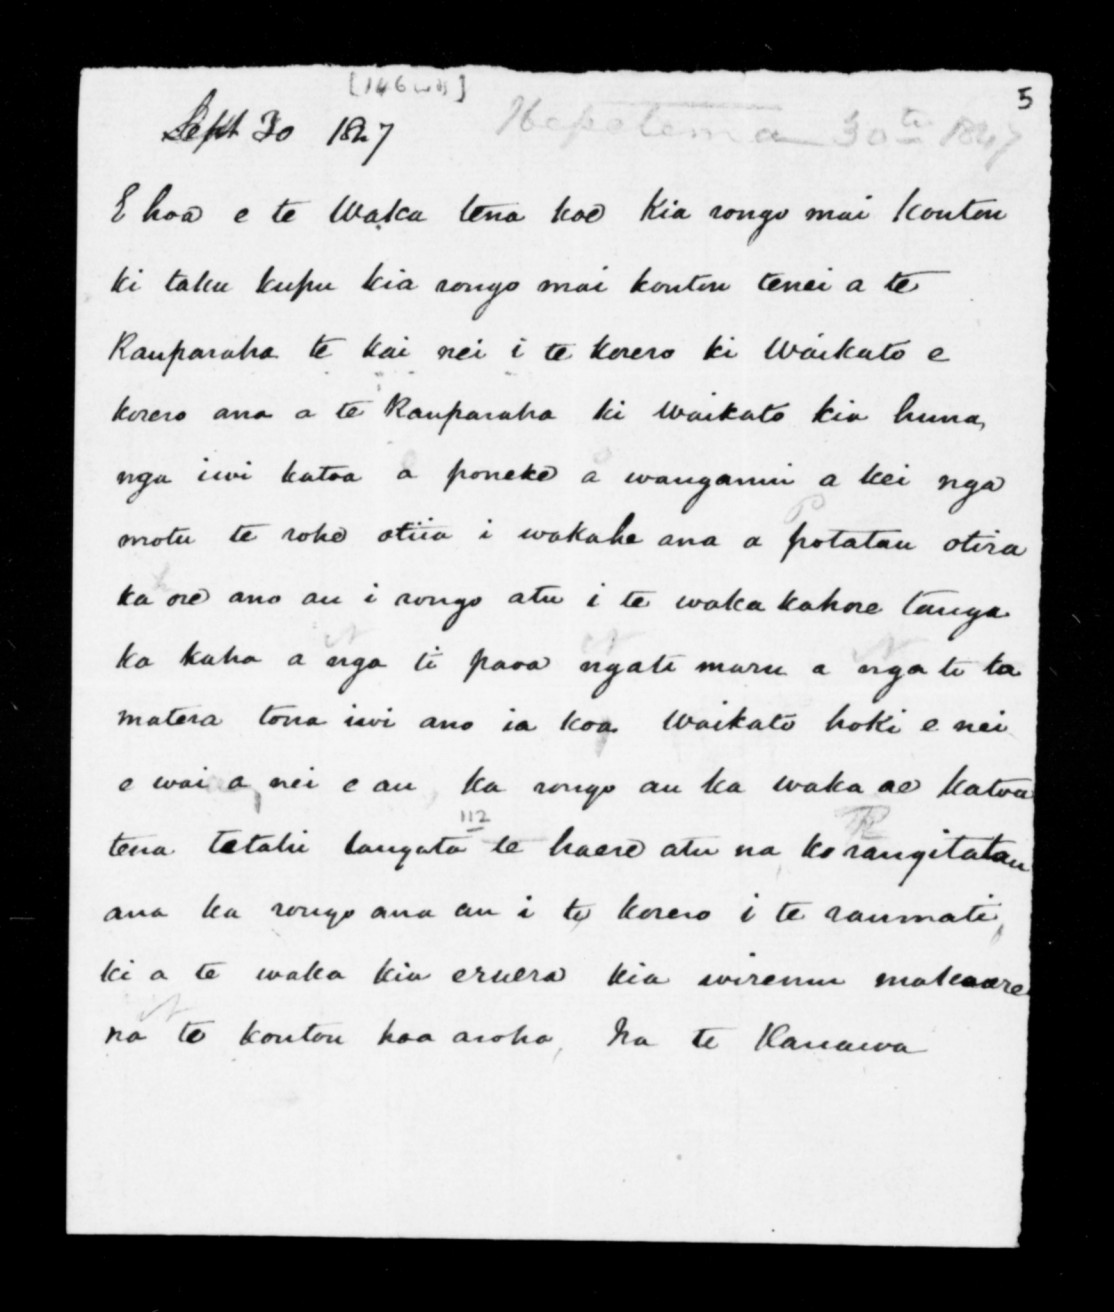 [146 wds]
5
Sept 30 1847 Hepetema 30th 1847
E hoa e te Waka tena koe Kia rongo mai Koutou
ki taku kupu kia rongo mai koutou tenei a te
Rauparaha te kai nei i te korero ki Waikato e
korero ana a te Rauparaha ki Waikato kia huna,
nga iwi katoa a poneke a wanganui a kei nga
motu te rohe otiia i wakahe ana a potatau otira
ka ore ano au i rongo atu i te waka kahore tanga
ka kaha a nga ti paoa ngati maru a nga ti ta
matera tona iwi ano ia koa Waikato hoki e nei
e wai a nei e au ka rongo au ka waka ae katoa
112
tena tetahi tangata te haere atu na ko rangitatau
ana ka rongo ana au i te korero i te raumati,
ki a te waka kia eruera kia wiremu makoare
na te koutou hoa aroha, Na te Kanawa